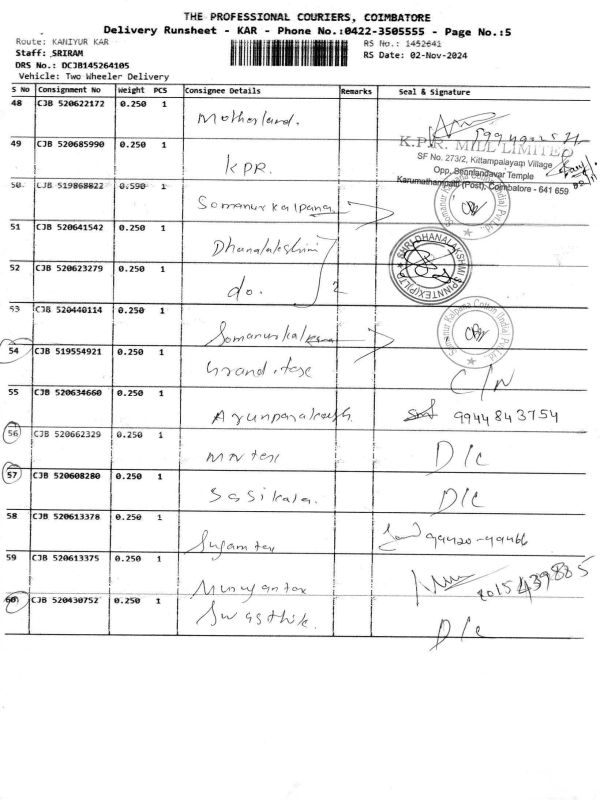 THE PROFESSIONAL COURIERS, COIMBATORE
Delivery Runsheet - KAR - Phone No.:0422-3505555 - Page No.:5
Route: KANIYUR KAR
RS No.: 1452641
Staff: SRIRAM
RS Date: 02-Nov-2024
DRS No.: DCJB145264105
Vehicle: Two Wheeler Delivery
S No Consignment No Weight PCS Consignee Details Remarks Seal & Signature
48 CJB 520622172 0.250 1 Motherland.
49 CJB 520685990 0.250 1 KPR.
K.P.R. MILL LIMITED
SF No. 273/2, Kittampalayam Village
Opp. Sennandavar Temple
Karumathampatti (Post), Coimbatore - 641 659
50. CJB 519868822 0.590 1 Somanur kalpana
Somanur Kalpana Cotton (India) Pvt Ltd.
51 CJB 520641542 0.250 1 Dhanalakshmi
SHRI DHANALAKSHMI SPINNTEX (P) LTD
52 CJB 520623279 0.250 1 do. 2
53 CJB 520440114 0.250 1 Somanur kalpana
Somanur Kalpana Cotton (India) Pvt Ltd.
54 CJB 519554921 0.250 1 Grand tex C/N
55 CJB 520634660 0.250 1 Arunprakash 9944843754
56 CJB 520662329 0.250 1 D/C
57 CJB 520608280 0.250 1 Sasikala. D/C
58 CJB 520613378 0.250 1 99420-49466
59 CJB 520613375 0.250 1 Muruyantex 8015439885
60 CJB 520430752 0.250 1 Swasthik. D/C